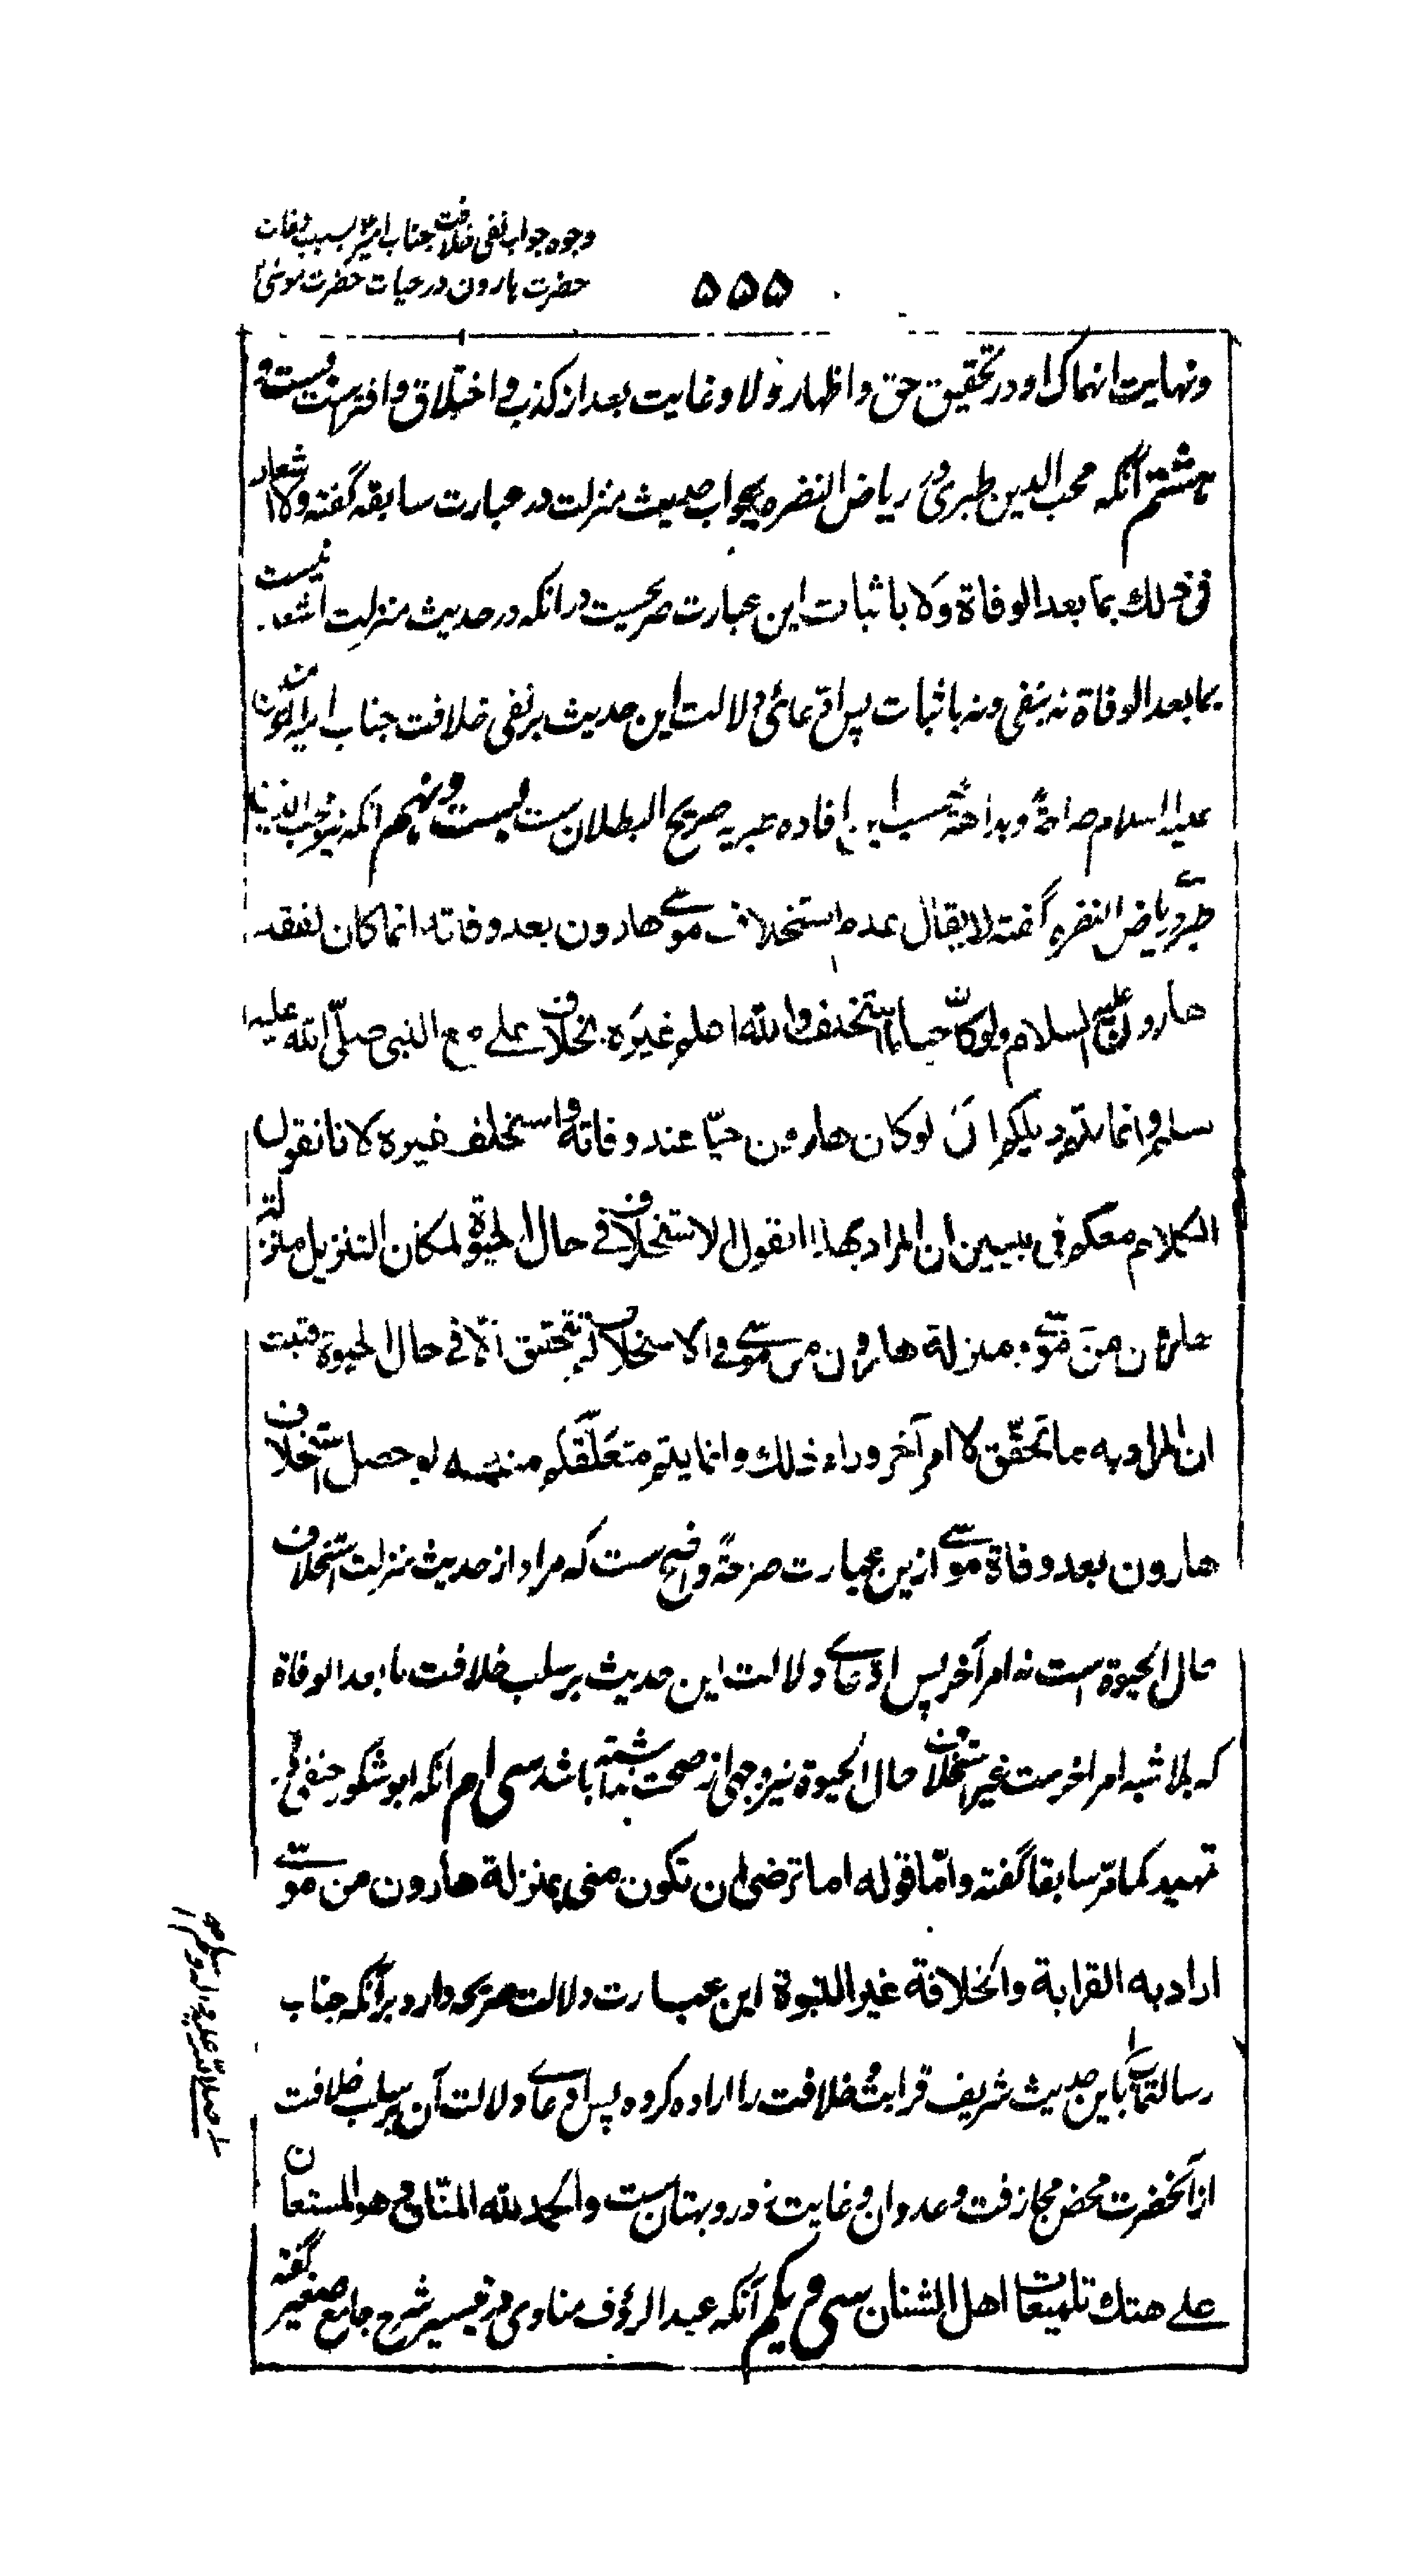 وجوه جواب نفی خلافت جناب امیر بسبب وفات
حضرت هارون در حیات حضرت موسی
۵۵۵
ونهایت انهماک او در تحقیق حق و اظهار ولا وغایت بعد از کذب و اختلاق و افتراست بیست و
هشتم آنکه محب الدین طبری در ریاض النضره بجواب حدیث منزلت در عبارت سابقه گفته ولا اشعار
فی ذلك بما بعد الوفاة ولا باثبات این عبارت صریحست در انکه در حدیث منزلت اشعار نیست
بما بعد الوفاة نه بنفی ونه باثبات پس ادّعائی دلالت این حدیث بر نفی خلافت جناب امیر المؤمنین
علیه السلام صراحةً وبداهةً حسب این افاده طبریه صریح البطلان ست بیست ونهم آنکه نیز محب الدین
طبری در ریاض النضره گفته لا یقال عدم استخلاف موسے هارون بعد وفاته انما کان لفقد
هارون علیه السلام ولو کان حیا ما استخلف والله اعلم غیره بخلاف علے مع النبی صلّی الله علیه
سلم وانما یتم دلیلکم ان لو کان هارون حیّا عند وفاته واستخلف غیره لانا نقول
الکلام معکم فی تبیین ان المراد بهذا القول الاستخلاف فی حال الحیوة لمکان التنزیل منزلة
هارون من موسے ومنزلة هارون من موسے فی الاستخلاف لم یتحقق الّا فی حال الحیوة فثبت
ان المراد به ما تحقّق لا امر آخر وراء ذلك وانما یتم متعلّقکم منه لو حصل استخلاف
هارون بعد وفاة موسے ازین عبارت صراحةً واضح ست که مراد از حدیث منزلت استخلاف
حال الحیوة است نه امر آخر پس ادّعاے دلالت این حدیث بر سلب خلافت ما بعد الوفاة
که بلا شبه امر اخر ست غیر استخلاف حال الحیوة نیز وجهی از صحت نداشته باشد سی ام انکه ابو شکور حنفی در
تمهید کما مرّ سابقا گفته وامّا قوله اما ترضی ان تکون منی بمنزلة هارون من موسے
اراد به القرابة والخلافة غیر النبوة این عبارت دلالت صریحه دارد بر آنکه جناب
رسالتمآب باین حدیث شریف قرابت و خلافت را اراده کرده پس ادعاے دلالت آن بر سلب خلافت
از آنحضرت محض مجازفت وعدوان وغایت زور وبهتان ست والحمد لله المنّان وهو المستعان
علے هتك تلمیعات اهل الشنان سی و یکم آنکه عبد الرؤف مناوی در تیسیر شرح جامع صغیر گفته
صلی الله علیه و آله وسلم